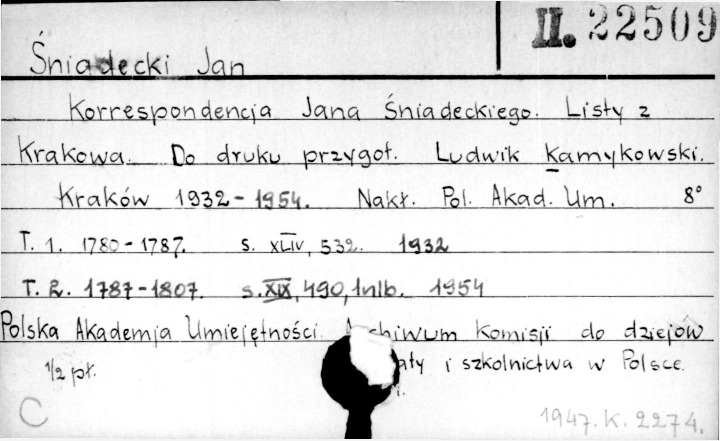 II. 22509
Śniadecki Jan
Korrespondencja Jana Śniadeckiego. Listy z
Krakowa. Do druku przygot. Ludwik Kamykowski.
Kraków 1932-1954. Nakł. Pol. Akad. Um. 8°
T. 1. 1780-1787. s. XLIV, 532. 1932
T. 2. 1787-1807. s. XIX, 490, 1nlb. 1954
Polska Akademja Umiejętności. Archiwum Komisji do dziejów
1/2 pł. i szkolnictwa w Polsce.
C
1947.K.2274.